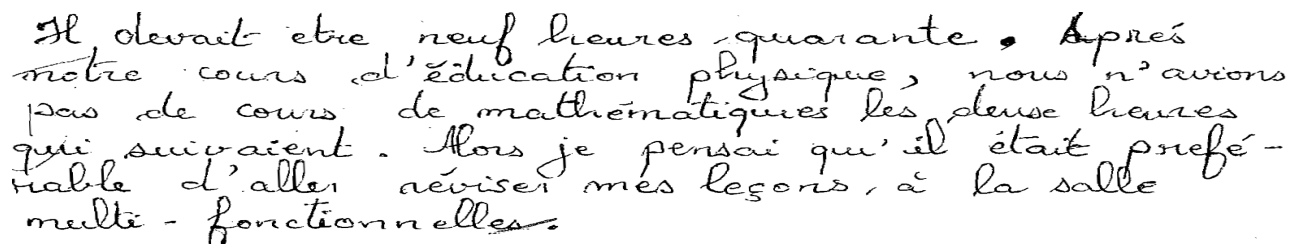 Il devait etre neuf heures quarante. Aprés
notre cours d'éducation physique, nous n'avions
pas de cours de mathématiques les deuse heures
qui suivaient. Alors je pensai qu'il était prefé-
rable d'aller réviser mes leçons, à la salle
multi-fonctionnelles.